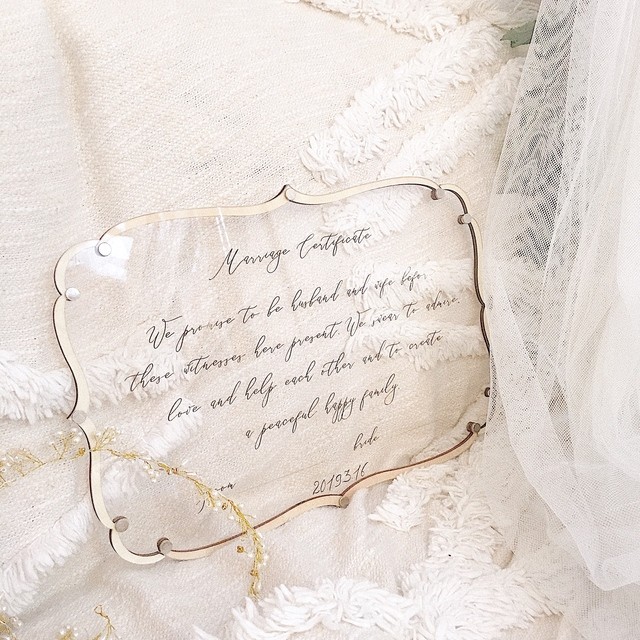 Marriage Certificate
We promise to be husband and wife before
these witnesses here present. We swear to admire.
love and help each other and to create
a peaceful happy family.
bride
2019.3.16